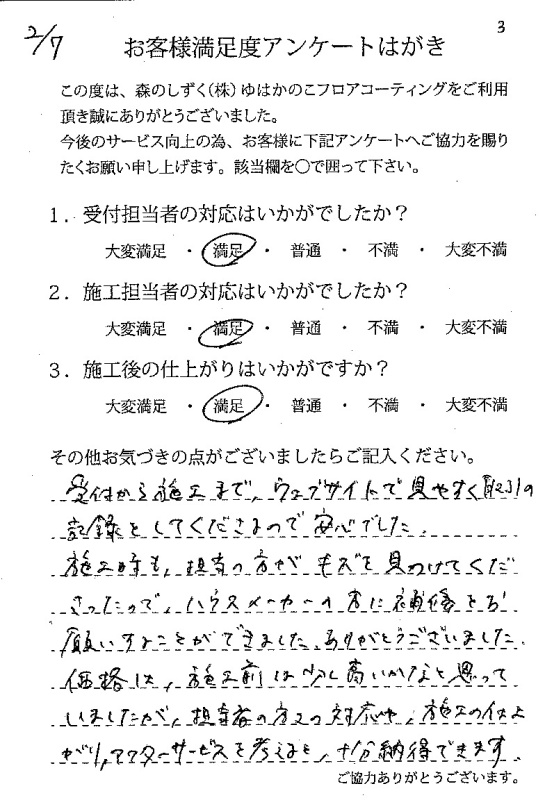 2/7
3
お客様満足度アンケートはがき
この度は、森のしずく(株)ゆはかのこフロアコーティングをご利用
頂き誠にありがとうございました。
今後のサービス向上の為、お客様に下記アンケートへご協力を賜り
たくお願い申し上げます。該当欄を〇で囲って下さい。
1．受付担当者の対応はいかがでしたか？
大変満足 ・ 満足 ・ 普通 ・ 不満 ・ 大変不満
2．施工担当者の対応はいかがでしたか？
大変満足 ・ 満足 ・ 普通 ・ 不満 ・ 大変不満
3．施工後の仕上がりはいかがですか？
大変満足 ・ 満足 ・ 普通 ・ 不満 ・ 大変不満
その他お気づきの点がございましたらご記入ください。
受付から施工まで、ウェブサイトで見やすく取引の
記録をしてくださるので安心でした。
施工時も、担当の方がキズを見つけてくだ
さったので、ハウスメーカーの方に補修をお
願いすることができました。ありがとうございました。
価格は、施工前は少し高いかなと思って
いましたが、担当者の方々の対応や、施工の仕上
がり、アフターサービスを考えると、十分納得できます。
ご協力ありがとうございます。